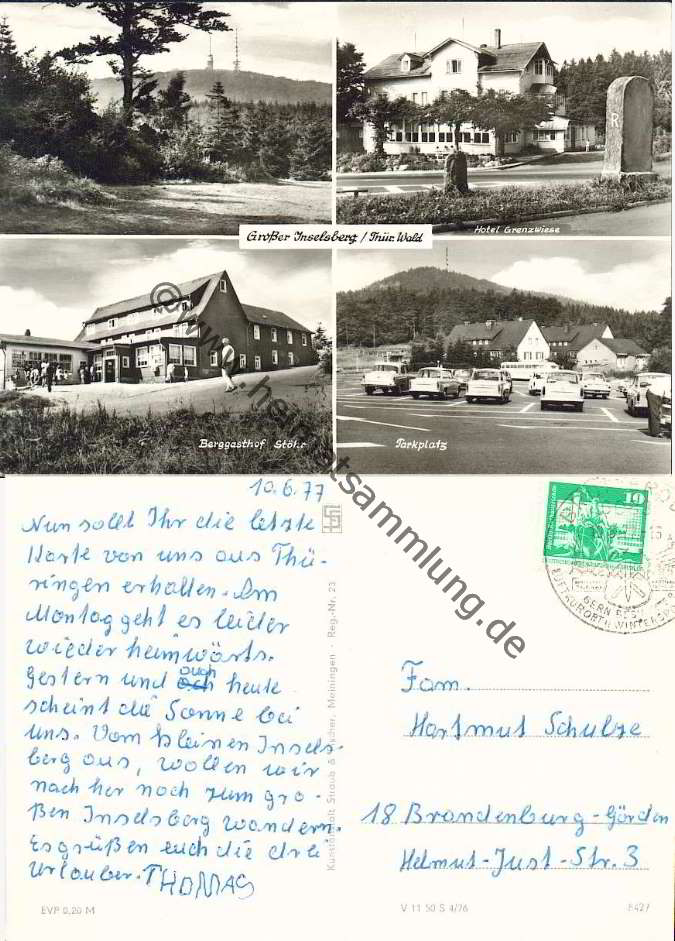 Großer Inselsberg / Thür. Wald
Hotel Grenzwiese
Berggasthof Stöhr
Parkplatz
R
© www.heimatsammlung.de
10.6.77
Nun sollt Ihr die letzte
Karte von uns aus Thü-
ringen erhalten. Am
Montag geht es leider
wieder heimwärts.
Gestern und auch heute
scheint die Sonne bei
uns. Vom kleinen Insels-
berg aus, wollen wir
nach her noch zum gro-
ßen Inselsberg wandern.
Es grüßen euch die drei
Urlauber. THOMAS
EVP 0,20 M
Kunstanstalt Straub & Fischer, Meiningen · Reg.-Nr. 23
10
GERN BES
LUFTKURORT U. WINTERSPO
Fam.
Hartmut Schulze
18 Brandenburg-Görden
Helmut-Just-Str. 3
V 11 50 S 4/76
8427